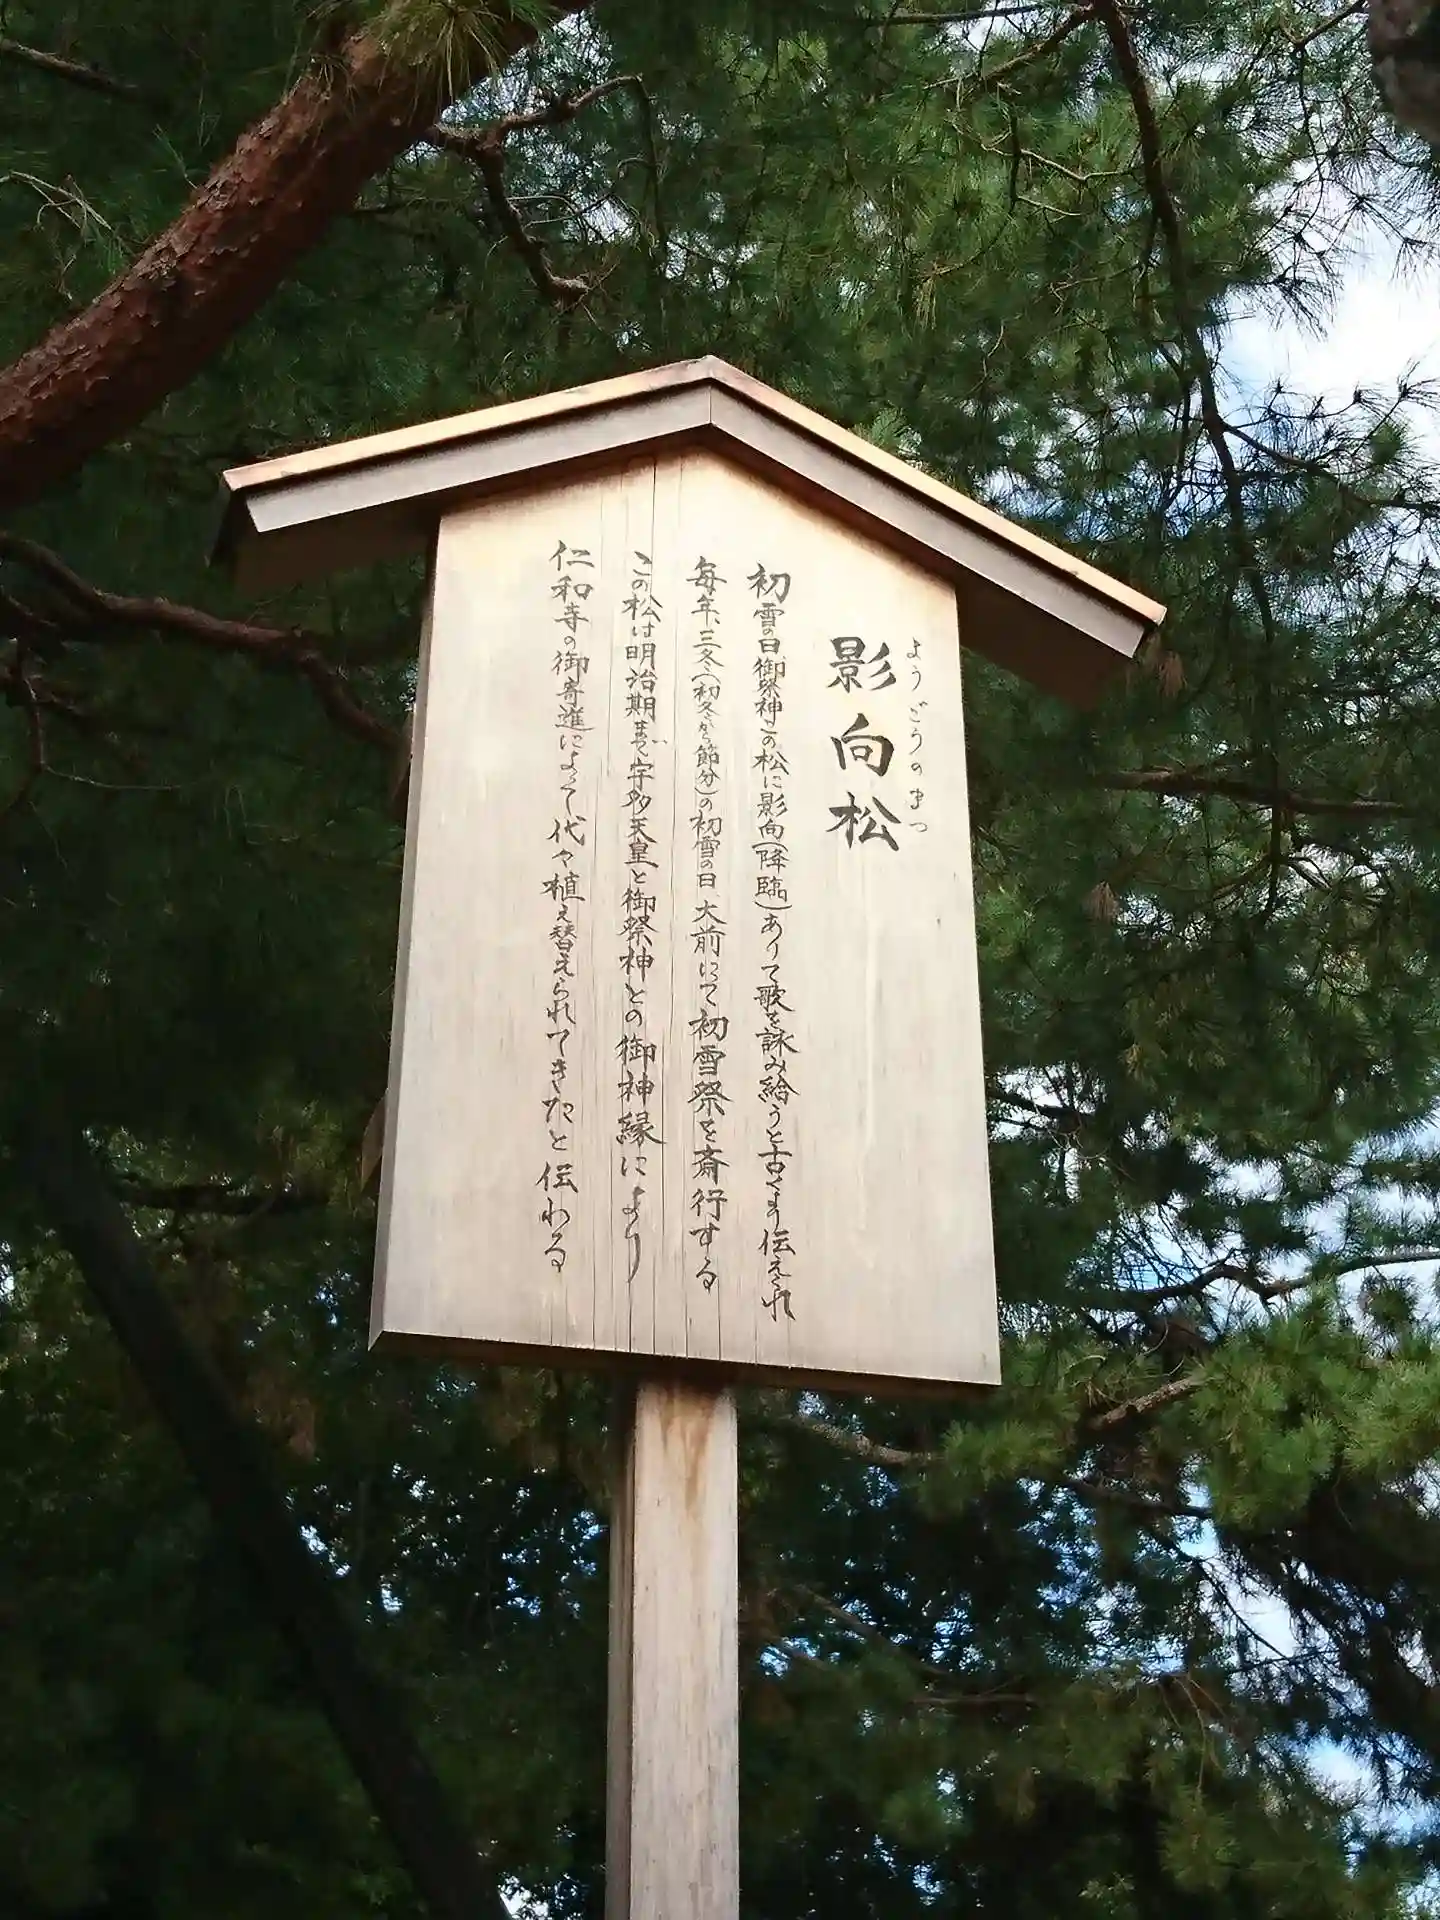 影向松
ようごうのまつ
初雪の日御祭神この松に影向(降臨)ありて歌を詠み給うと古くより伝えられ
毎年、三冬(初冬から節分)の初雪の日、大前にて初雪祭を斎行する
この松は明治期まで宇多天皇と御祭神との御神縁により
仁和寺の御寄進によって代々植え替えられてきたと伝わる